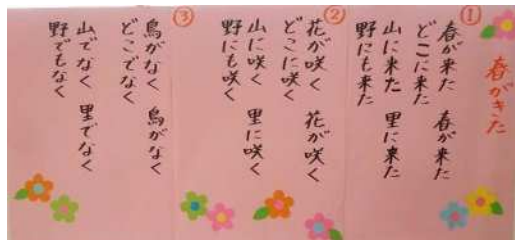 春がきた
①
春が来た　春が来た
どこに来た
山に来た　里に来た
野にも来た
②
花が咲く　花が咲く
どこに咲く
山に咲く　里に咲く
野にも咲く
③
鳥がなく　鳥がなく
どこでなく
山でなく　里でなく
野でもなく